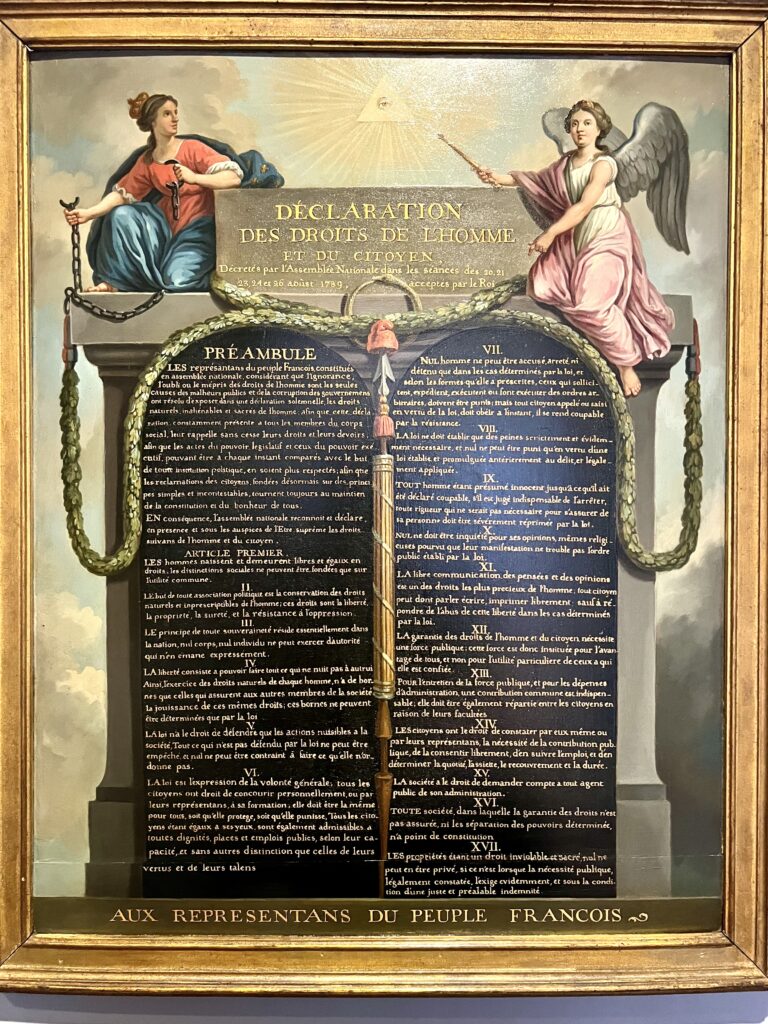 DÉCLARATION
DES DROITS DE L'HOMME
ET DU CITOYEN.
Décretés par l'Assemblée Nationale dans les séances des 20. 21
23. 24 et 26 aoûst 1789, acceptés par le Roi
PRÉAMBULE
LES représantans du peuple Francois, constitués
en assemblée nationale, considérant que l'ignorance,
l'oubli ou le mépris des droits de l'homme sont les seules
causes des malheurs publics et de la corruption des gouvernemens
ont résolu d'exposer dans une déclaration solemnelle, les droits
naturels, inaliénables et sacrés de l'homme; afin que cette, décla
ration, constamment présente a tous les membres du corps
social, leur rappelle sans cesse leurs droits et leurs devoirs;
afin que les actes du pouvoir législatif et ceux du pouvoir exé
cutif, pouvant être a chaque instant comparés avec le but
de toute institution politique, en soient plus respectés; afin que
les reclamations des citoyens, fondées désormais sur des princi
pes simples et incontestables, tournent toujours au maintien
de la constitution et du bonheur de tous.
EN conséquence, l'assemblée nationale reconnoit et déclare,
en presence et sous les auspices de l'Etre suprême les droits
suivans de l'homme et du citoyen.
ARTICLE PREMIER.
LES hommes naissent et demeurent libres et égaux en
droits, les distinctions sociales ne peuvent être fondées que sur
l'utilité commune.
II
LE but de toute association politique est la conservation des droits
naturels et inprescriptibles de l'homme; ces droits sont la liberté,
la propriete, la sureté, et la résistance à l'oppression.
III.
LE principe de toute souveraineté réside essentiellement dans
la nation, nul corps, nul individu ne peut exercer d'autorité
qui n'en émane expressement.
IV
LA liberté consiste a pouvoir faire tout ce qui ne nuit pas à autrui
Ainsi, l'exercice des droits naturels de chaque homme, n'a de bor-
nes que celles qui assurent aux autres membres de la société
la jouissance de ces mêmes droits; ces bornes ne peuvent
être déterminées que par la loi
V
LA loi n'a le droit de défendre que les actions nuisibles a la
société. Tout ce qui n'est pas défendu par la loi ne peut être
empêché, et nul ne peut être contraint à faire ce qu'elle n'or-
donne pas.
VI.
LA loi est l'expression de la volonté générale; tous les
citoyens ont droit de concourir personnellement, ou par
leurs représentans, à sa formation; elle doit être la même
pour tous, soit qu'elle protege, soit qu'elle punisse, Tous les cito
yens étant égaux à ses yeux, sont également admissibles a
toutes dignités, places et emplois publics, selon leur ca-
pacité, et sans autres distinction que celles de leurs
vertus et de leurs talens
VII.
NUL homme ne peut être accusé, arreté ni
détenu que dans les cas déterminés par la loi, et
selon les formes qu'elle a préscrites, ceux qui sollici
tent, expédient, exécutent ou font exécuter des ordres ar-
bitraires, doivent être punis; mais tout citoyen appelé ou saisi
en vertu de la loi, doit obéir a l'instant, il se rend coupable
par la résistance.
VIII.
LA loi ne doit établir que des peines strictement et évidem-
ment nécessaire, et nul ne peut être puni qu'en vertu d'une
loi établie et promulguée antérierement au délit, et légale
ment appliquée.
IX.
TOUT homme étant présumé innocent jusqu'a ce qu'il ait
été déclaré coupable, s'il est jugé indispensable de l'arrêter,
toute rigueur qui ne serait pas nécessaire pour s'assurer de
sa personne doit être sévèrement réprimée par la loi.
X.
NUL ne doit être inquiété pour ses opinions, mêmes religi
euses pourvu que leur manifestation ne trouble pas l'ordre
public établi par la loi.
XI.
LA libre communication des pensées et des opinions
est un des droits les plus precieux de l'homme; tout citoyen
peut donc parler écrire, imprimer librement; sauf à ré
pondre de l'abus de cette liberté dans les cas déterminés
par la loi.
XII.
LA garantie des droits de l'homme et du citoyen nécessite
une force publique; cette force est donc instituée pour l'avan
tage de tous, et non pour l'utilité particuliere de ceux a qui
elle est confiée.
XIII.
POUR l'entretien de la force publique, et pour les dépenses
d'administration, une contribution commune est indispen-
sable; elle doit être également répartie entre les citoyens en
raison de leurs facultées
XIV.
LES citoyens ont le droit de constater par eux même ou
par leurs représentans, la nécessité de la contribution pub
lique, de la consentir librement, d'en suivre l'emploi, et d'en
déterminer la quotité, l'assiette, le recouvrement et la durée.
XV.
LA société a le droit de demander compte a tout agent
public de son administration.
XVI.
TOUTE société, dans laquelle la garantie des droits n'est
pas assurée, ni les séparation des pouvoirs déterminée,
n'a point de constitution.
XVII.
LES propriétés étant un droit inviolable et sacré, nul ne
peut en être privé, si ce n'est lorsque la nécessité publique,
légalement constatée, l'exige evidemment, et sous la condi
tion d'une juste et préalable indemnité.
AUX REPRESENTANS DU PEUPLE FRANCOIS